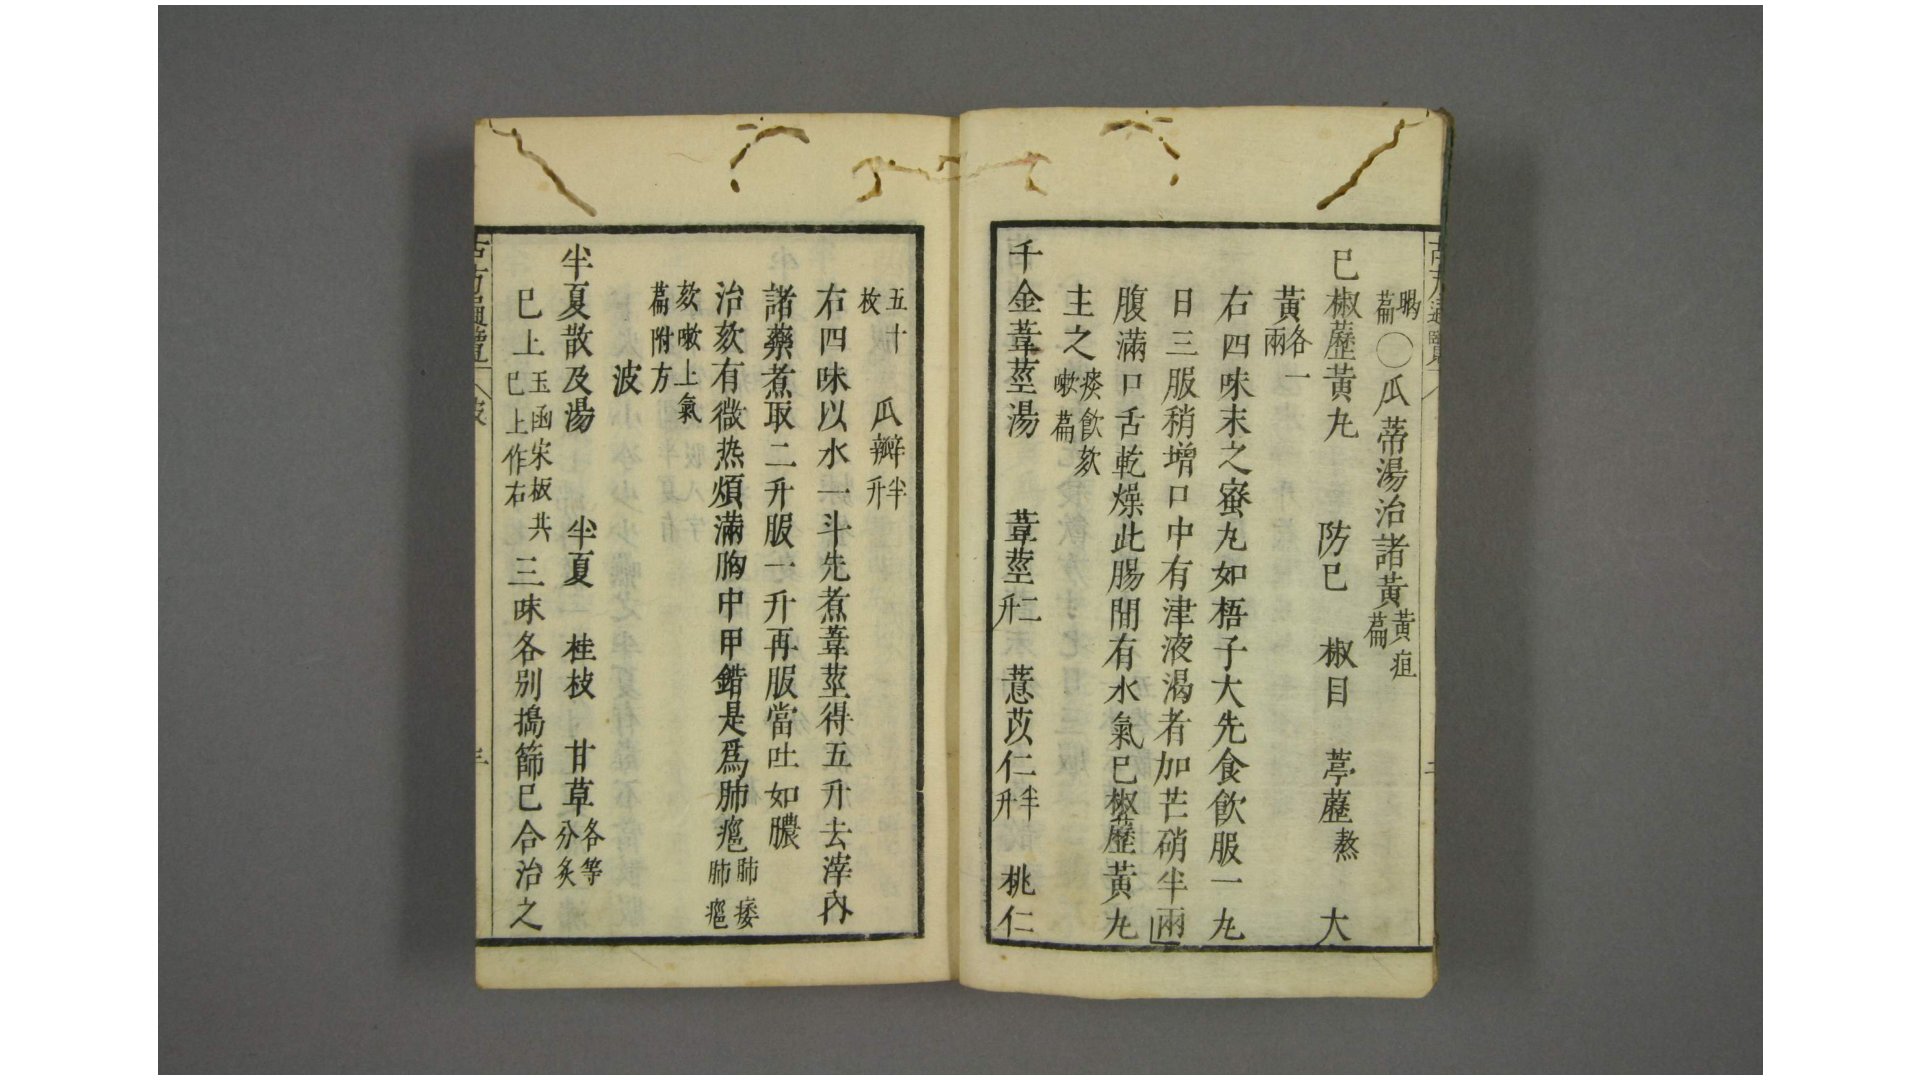 暍篇〇瓜蒂湯治諸黃黃疸篇
已椒藶黃丸 防已 椒目 葶藶熬 大
黃各一兩
右四味末之蜜丸如梧子大先食飲服一丸
日三服稍增口中有津液渴者加芒硝半兩
腹滿口舌乾燥此腸間有水氣已椒藶黃丸
主之痰飲欬嗽篇
千金葦莖湯 葦莖二升 薏苡仁半升 桃仁
五十枚 瓜瓣半升
右四味以水一斗先煮葦莖得五升去滓內
諸藥煮取二升服一升再服當吐如膿
治欬有微热煩滿胸中甲錯是爲肺癰肺痿肺癰
欬嗽上氣篇附方
波
半夏散及湯 半夏 桂枝 甘草各等分炙
已上玉函宋板共已上作右三味各別搗篩已合治之